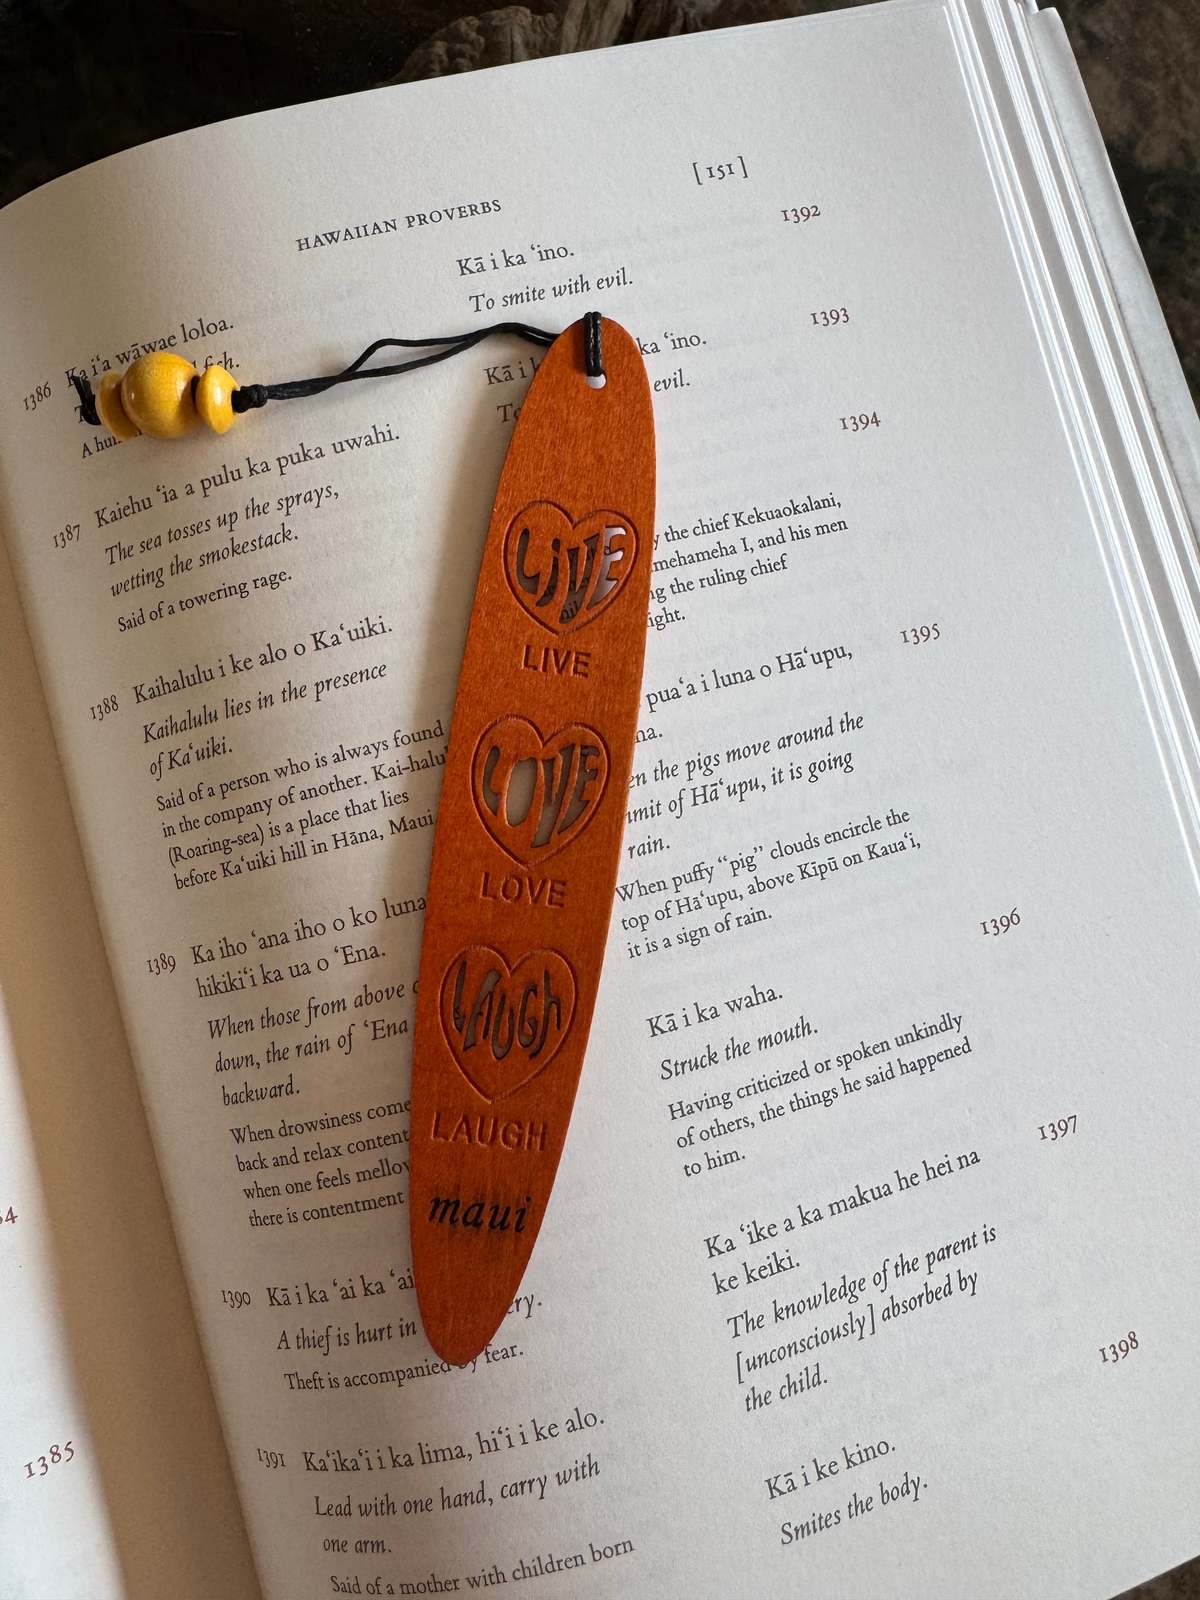 [151]
HAWAIIAN PROVERBS
1386 Ka iʻa wāwae loloa.
A
1387 Kaiehu ʻia a pulu ka puka uwahi.
The sea tosses up the sprays,
wetting the smokestack.
Said of a towering rage.
1388 Kaihalulu i ke alo o Kaʻuiki.
Kaihalulu lies in the presence
of Kaʻuiki.
Said of a person who is always found
in the company of another. Kai-halu
(Roaring-sea) is a place that lies
before Kaʻuiki hill in Hāna, Maui
1389 Ka iho ʻana iho o ko luna
hikikiʻi ka ua o ʻEna.
When those from above
down, the rain of ʻEna
backward.
When drowsiness come
back and relax content
when one feels mellow
there is contentment
1390 Kā i ka ʻai ka ʻai
A thief is hurt in
Theft is accompanied by fear.
1391 Kaʻikaʻi i ka lima, hiʻi i ke alo.
Lead with one hand, carry with
one arm.
Said of a mother with children born
1392
Kā i ka ʻino.
To smite with evil.
1393
Kā i ka ʻino.
To evil.
1394
the chief Kekuaokalani,
mehameha I, and his men
the ruling chief
1395
puaʻa i luna o Hāʻupu,
na.
the pigs move around the
of Hāʻupu, it is going
rain.
When puffy “pig” clouds encircle the
top of Hāʻupu, above Kīpū on Kauaʻi,
it is a sign of rain.
1396
Kā i ka waha.
Struck the mouth.
Having criticized or spoken unkindly
of others, the things he said happened
to him.
1397
Ka ʻike a ka makua he hei na
ke keiki.
The knowledge of the parent is
[unconsciously] absorbed by
the child.
1398
Kā i ke kino.
Smites the body.
LIVE
LIVE
LOVE
LOVE
LAUGH
LAUGH
maui
1385